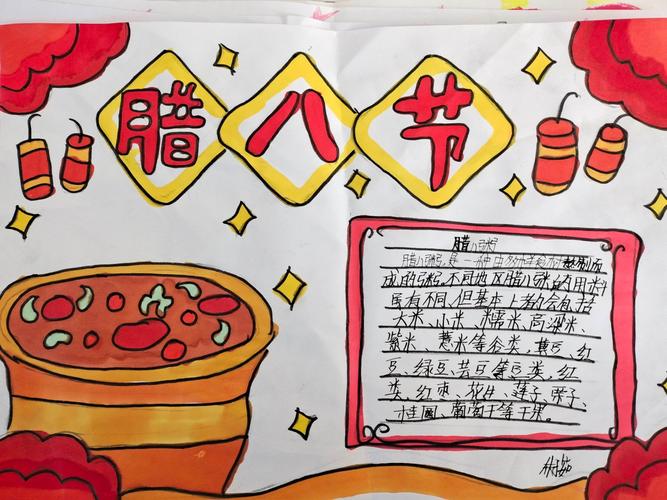 腊八节
腊八粥
腊八粥是一种由多种食材熬制而
成的粥,不同地区腊八粥的用料
虽有不同,但基本上都会包括
大米、小米、糯米、高粱米、
紫米、薏米等谷类,黄豆、红
豆、绿豆、芸豆等豆类,红
类,红枣、花生、莲子、栗子、
桂圆、葡萄干等干果。